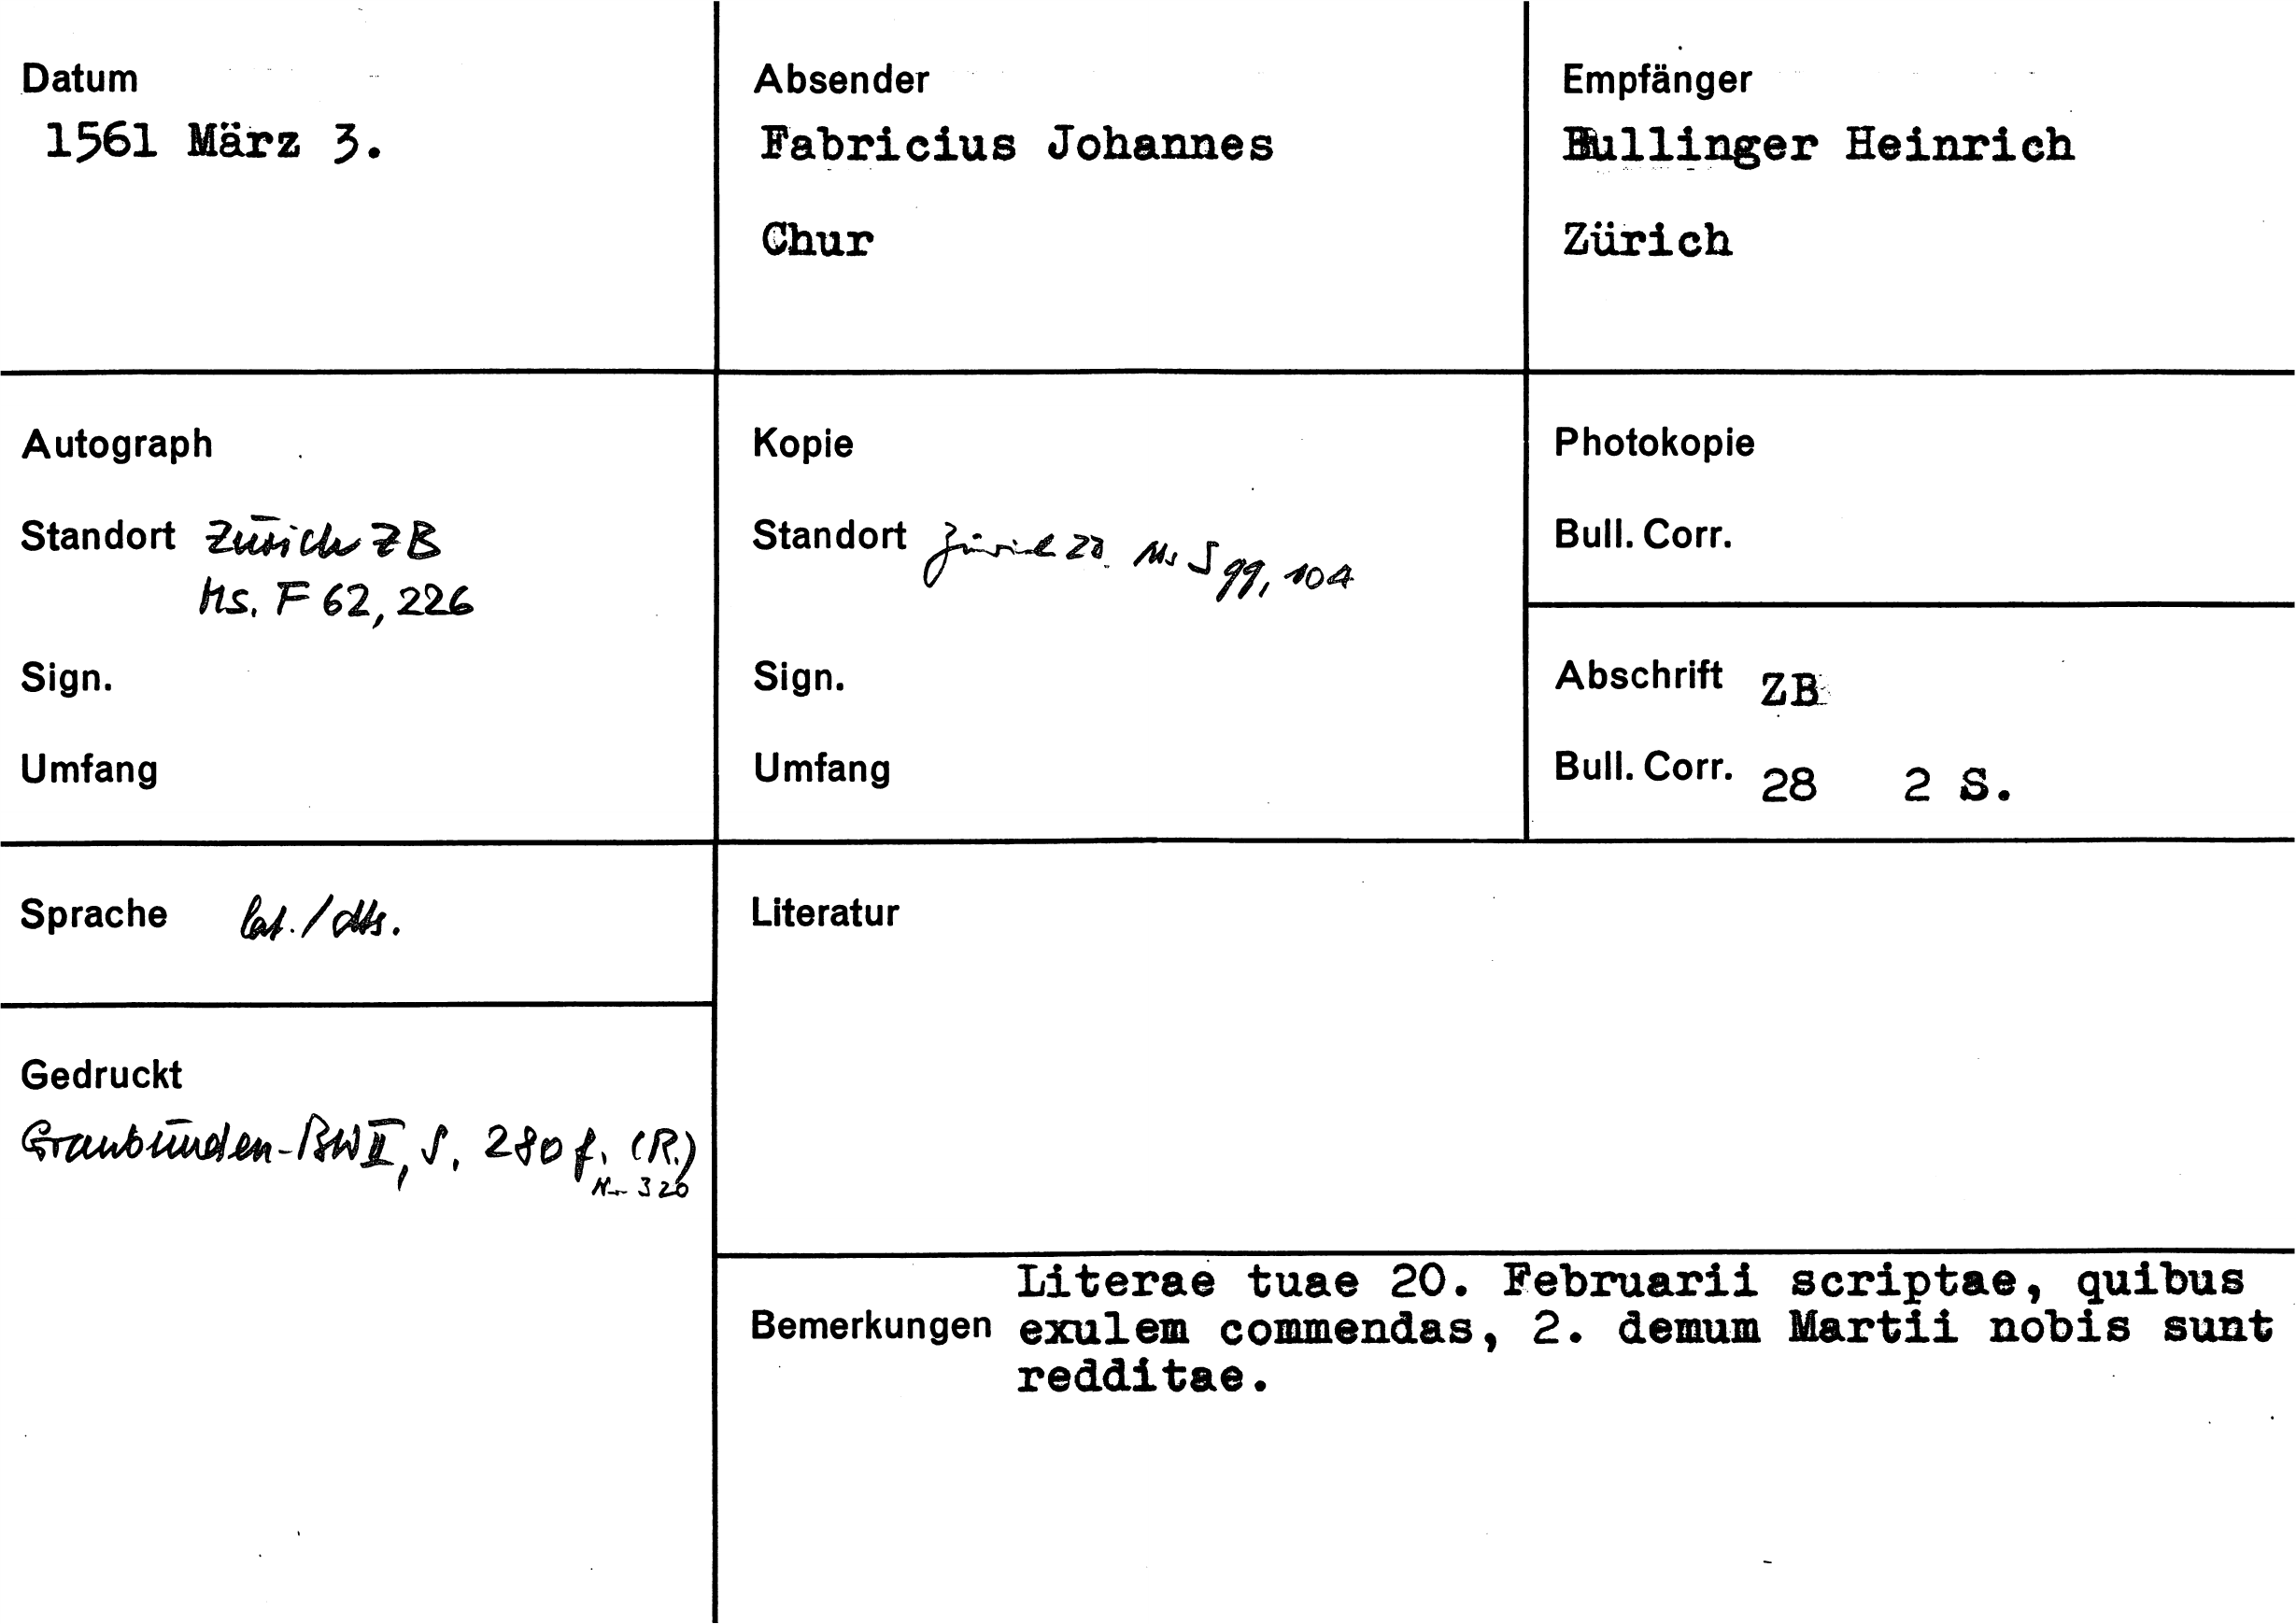 Datum
1561 März 3.
Absender
Fabricius Johannes
Chur
Empfänger
Bullinger Heinrich
Zürich
Autograph
Standort Zürich ZB
Ms. F 62, 226
Sign.
Umfang
Kopie
Standort Zürich ZB Ms S 99, 104
Sign.
Umfang
Photokopie
Bull. Corr.
Abschrift ZB
Bull. Corr. 28 2 S.
Sprache lat./dts.
Literatur
Gedruckt
Graubünden-BW II, S. 280 f. (R.)
Nr. 320
Bemerkungen
Literae tuae 20. Februarii scriptae, quibus
exulem commendas, 2. demum Martii nobis sunt
redditae.